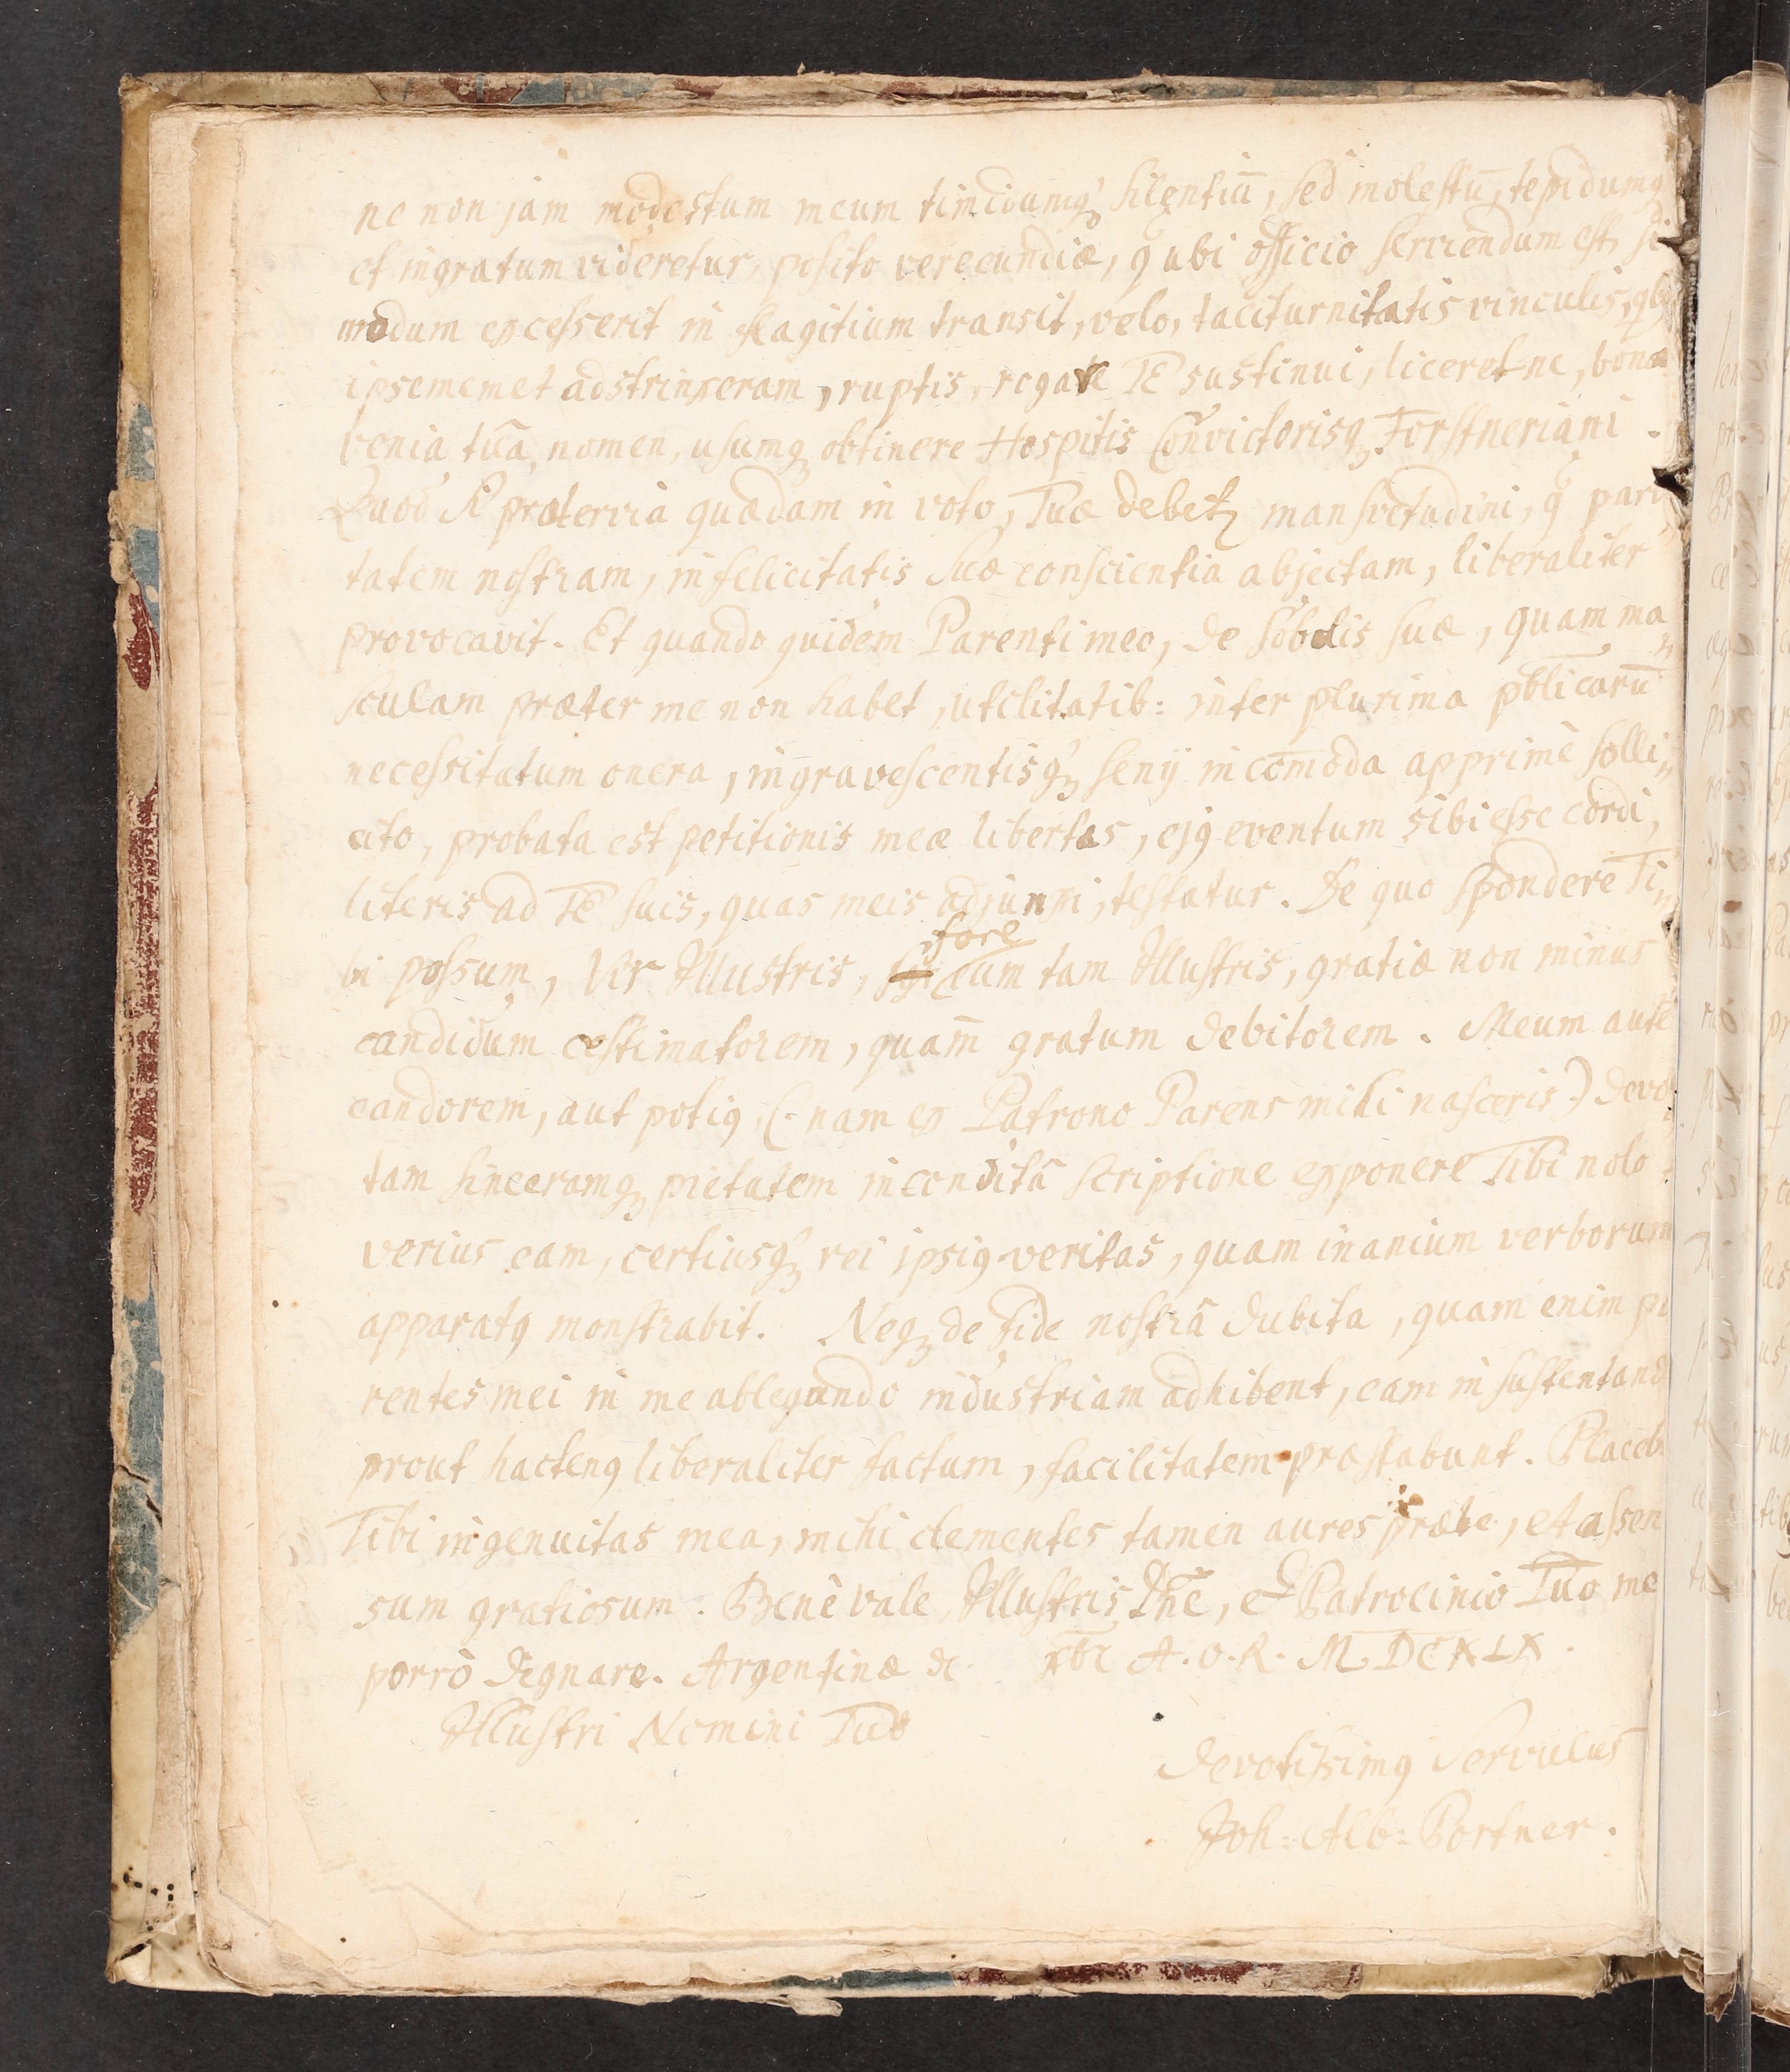 ne non jam modestum meum timidumq́₃ silentiū, sed molestū, tepidumq₃
et ingratum videretur, posito verecundiæ, q̄ ubi officio serviendum est, si
modum excesserit in flagitium transit, velo, taciturnitatis vinculis, qb₉
ipsememet adstrinxeram, ruptis, rogare TE sustinui, liceret ne, bona
venia tuâ, nomen, usumq₃ obtinere Hospitis Convictorisq₃ Forstneriani.
Quod si protervia quædam in voto, Tuæ debet₂ mansvetudini, q̄ pari
tatem nostram, infelicitatis suæ conscientiâ abjectam, liberaliter
provocavit. Et quando quidem Parenti meo, de sobolis suæ, quam ma„
sculam præter me non habet, utilitatib: inter plurima pblicarū
necessitatum onera, ingravescentisq́₃ senij incōmoda apprimè solli„
cito, probata est petitionis meæ libertas, ej₉ eventum sibi esse cordi,
literis ad TE suis, quas meis adjunxi, testatur. De quo spondere Ti„
bi possum, Vir Illustris, fore eum tam Illustris, gratiæ non minus
candidum æstimatorem, quam gratum debitorem. Meum autē
candorem, aut poti₉, (nam ex Patrono Parens mihi nasceris) devo
tam sinceramq₃ pietatem inconditâ scriptione exponere Tibi nolo
verius eam, certiusq́₃ rei ipsi₉ veritas, quam inanium verborum
apparat₉ monstrabit. Neq₃ de fide nostrâ dubita, quam enim pa
rentes mei in me ablegando industriam adhibent, eam in sustentand
prout hacten₉ liberaliter factum, facilitatem præstabunt. Placeb
Tibi ingenuitas mea, mihi clementes tamen aures præbe, et assen
sum gratiosum. Benè vale, Illustris Dn̄e, & Patrocinio Tuo me
porrò dignare. Argentinæ d. xbr A. O. R. MDCXLX.
Illustri Nomini Tuo
devotissim₉ Servulus
Joh: Alb: Portner.